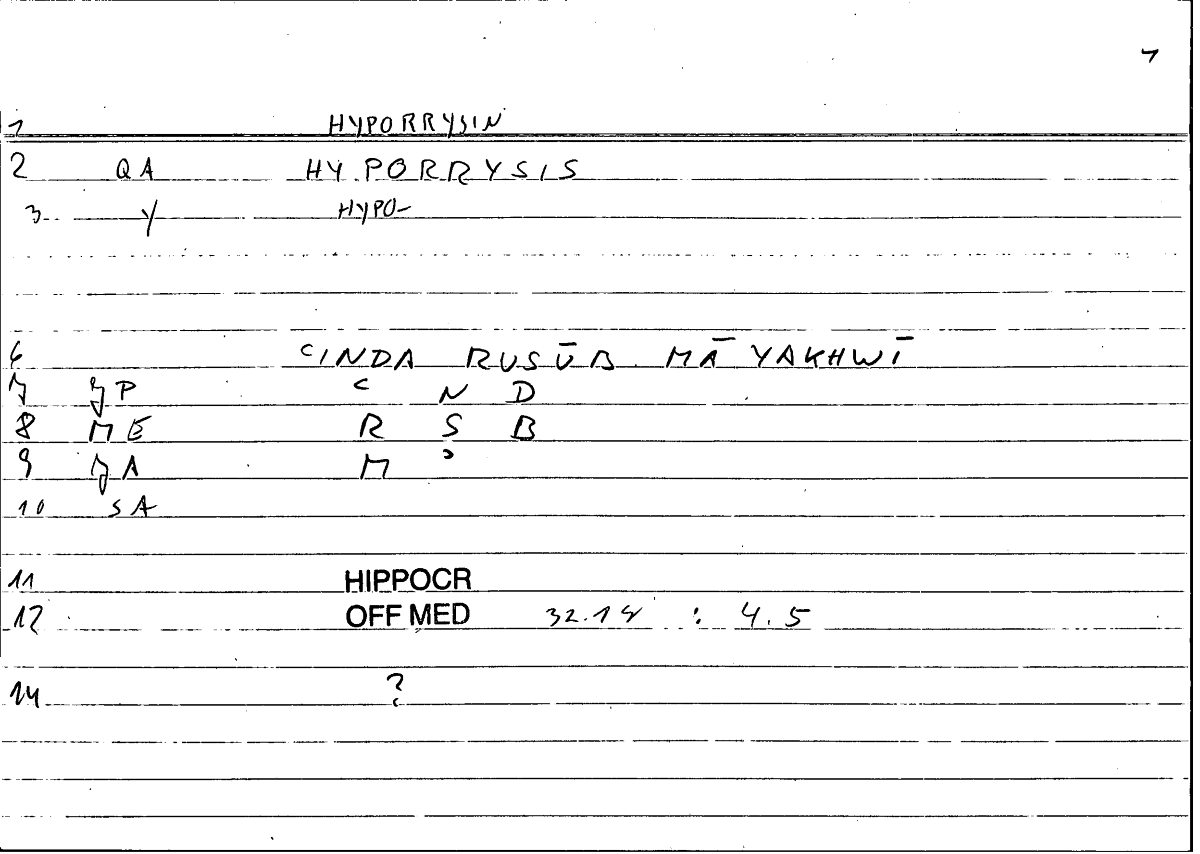 1
1 HYPORRYSIN
2 QA HYPORRYSIS
3 Y HYPO-
6 ʿINDA RUSŪB MĀ YAKHWĪ
7 JP ʿ N D
8 ME R S B
9 JA M ʾ
10 SA
11 HIPPOCR
12 OFF MED 32.14 : 4.5
14 ?